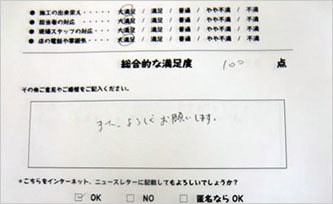 ●施工の出来栄え・・・ 大満足 / 満足 / 普通 / やや不満 / 不満
●担当者の対応 大満足 / 満足 / 普通 / やや不満 / 不満
●現場スタッフの対応・ 大満足 / 満足 / 普通 / やや不満 / 不満
●店の電話や雰囲気 大満足 / 満足 / 普通 / やや不満 / 不満
総合的な満足度 100 点
その他ご意見やご感想をご記入ください。
また、よろしくお願いします。
*こちらをインターネット、ニュースレターに記載してもよろしいでしょうか？
☑ OK □ NO □ 匿名ならOK